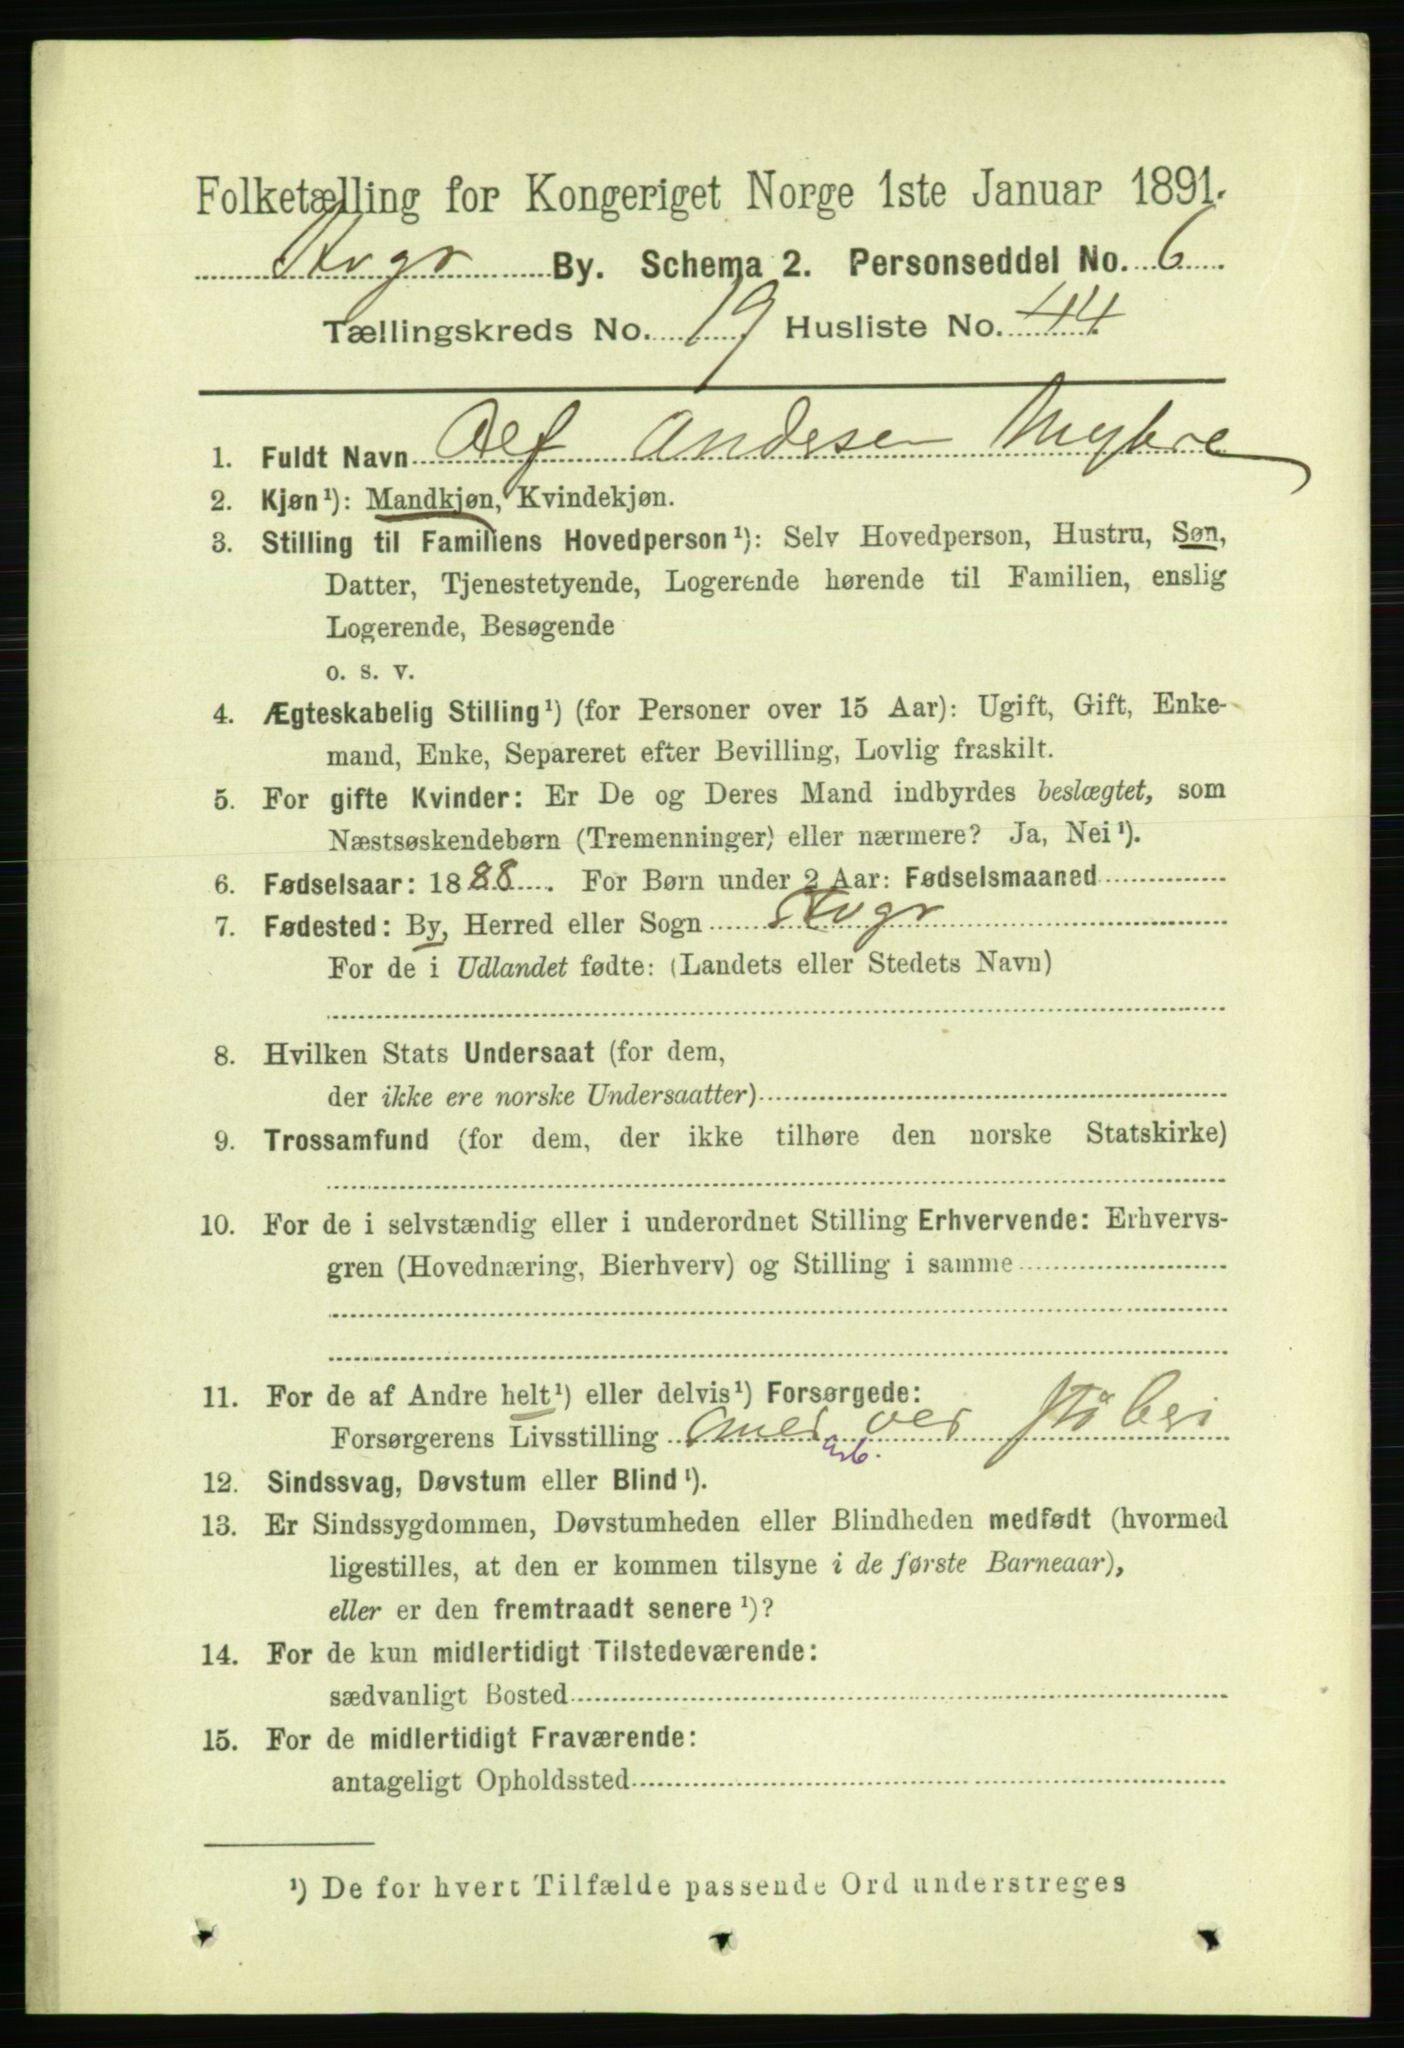 Folketælling for Kongeriget Norge 1ste Januar 1891.
Kvgr By. Schema 2. Personseddel No. 6
Tællingskreds No. 19 Husliste No. 44
1. Fuldt Navn Alf Andersen Myhre
2. Kjøn¹): Mandkjøn, Kvindekjøn.
3. Stilling til Familiens Hovedperson¹): Selv Hovedperson, Hustru, Søn,
Datter, Tjenestetyende, Logerende hørende til Familien, enslig
Logerende, Besøgende
o. s. v.
4. Ægteskabelig Stilling¹) (for Personer over 15 Aar): Ugift, Gift, Enke-
mand, Enke, Separeret efter Bevilling, Lovlig fraskilt.
5. For gifte Kvinder: Er De og Deres Mand indbyrdes beslægtet, som
Næstsøskendebørn (Tremenninger) eller nærmere? Ja, Nei¹).
6. Fødselsaar: 1888. For Børn under 2 Aar: Fødselsmaaned
7. Fødested: By, Herred eller Sogn Kvgr
For de i Udlandet fødte: (Landets eller Stedets Navn)
8. Hvilken Stats Undersaat (for dem,
der ikke ere norske Undersaatter)
9. Trossamfund (for dem, der ikke tilhøre den norske Statskirke)
10. For de i selvstændig eller i underordnet Stilling Erhvervende: Erhvervs-
gren (Hovednæring, Bierhverv) og Stilling i samme
11. For de af Andre helt¹) eller delvis¹) Forsørgede:
Forsørgerens Livsstilling ved Støberi
arb.
12. Sindssvag, Døvstum eller Blind¹).
13. Er Sindssygdommen, Døvstumheden eller Blindheden medfødt (hvormed
ligestilles, at den er kommen tilsyne i de første Barneaar),
eller er den fremtraadt senere¹)?
14. For de kun midlertidigt Tilstedeværende:
sædvanligt Bosted
15. For de midlertidigt Fraværende:
antageligt Opholdssted
¹) De for hvert Tilfælde passende Ord understreges